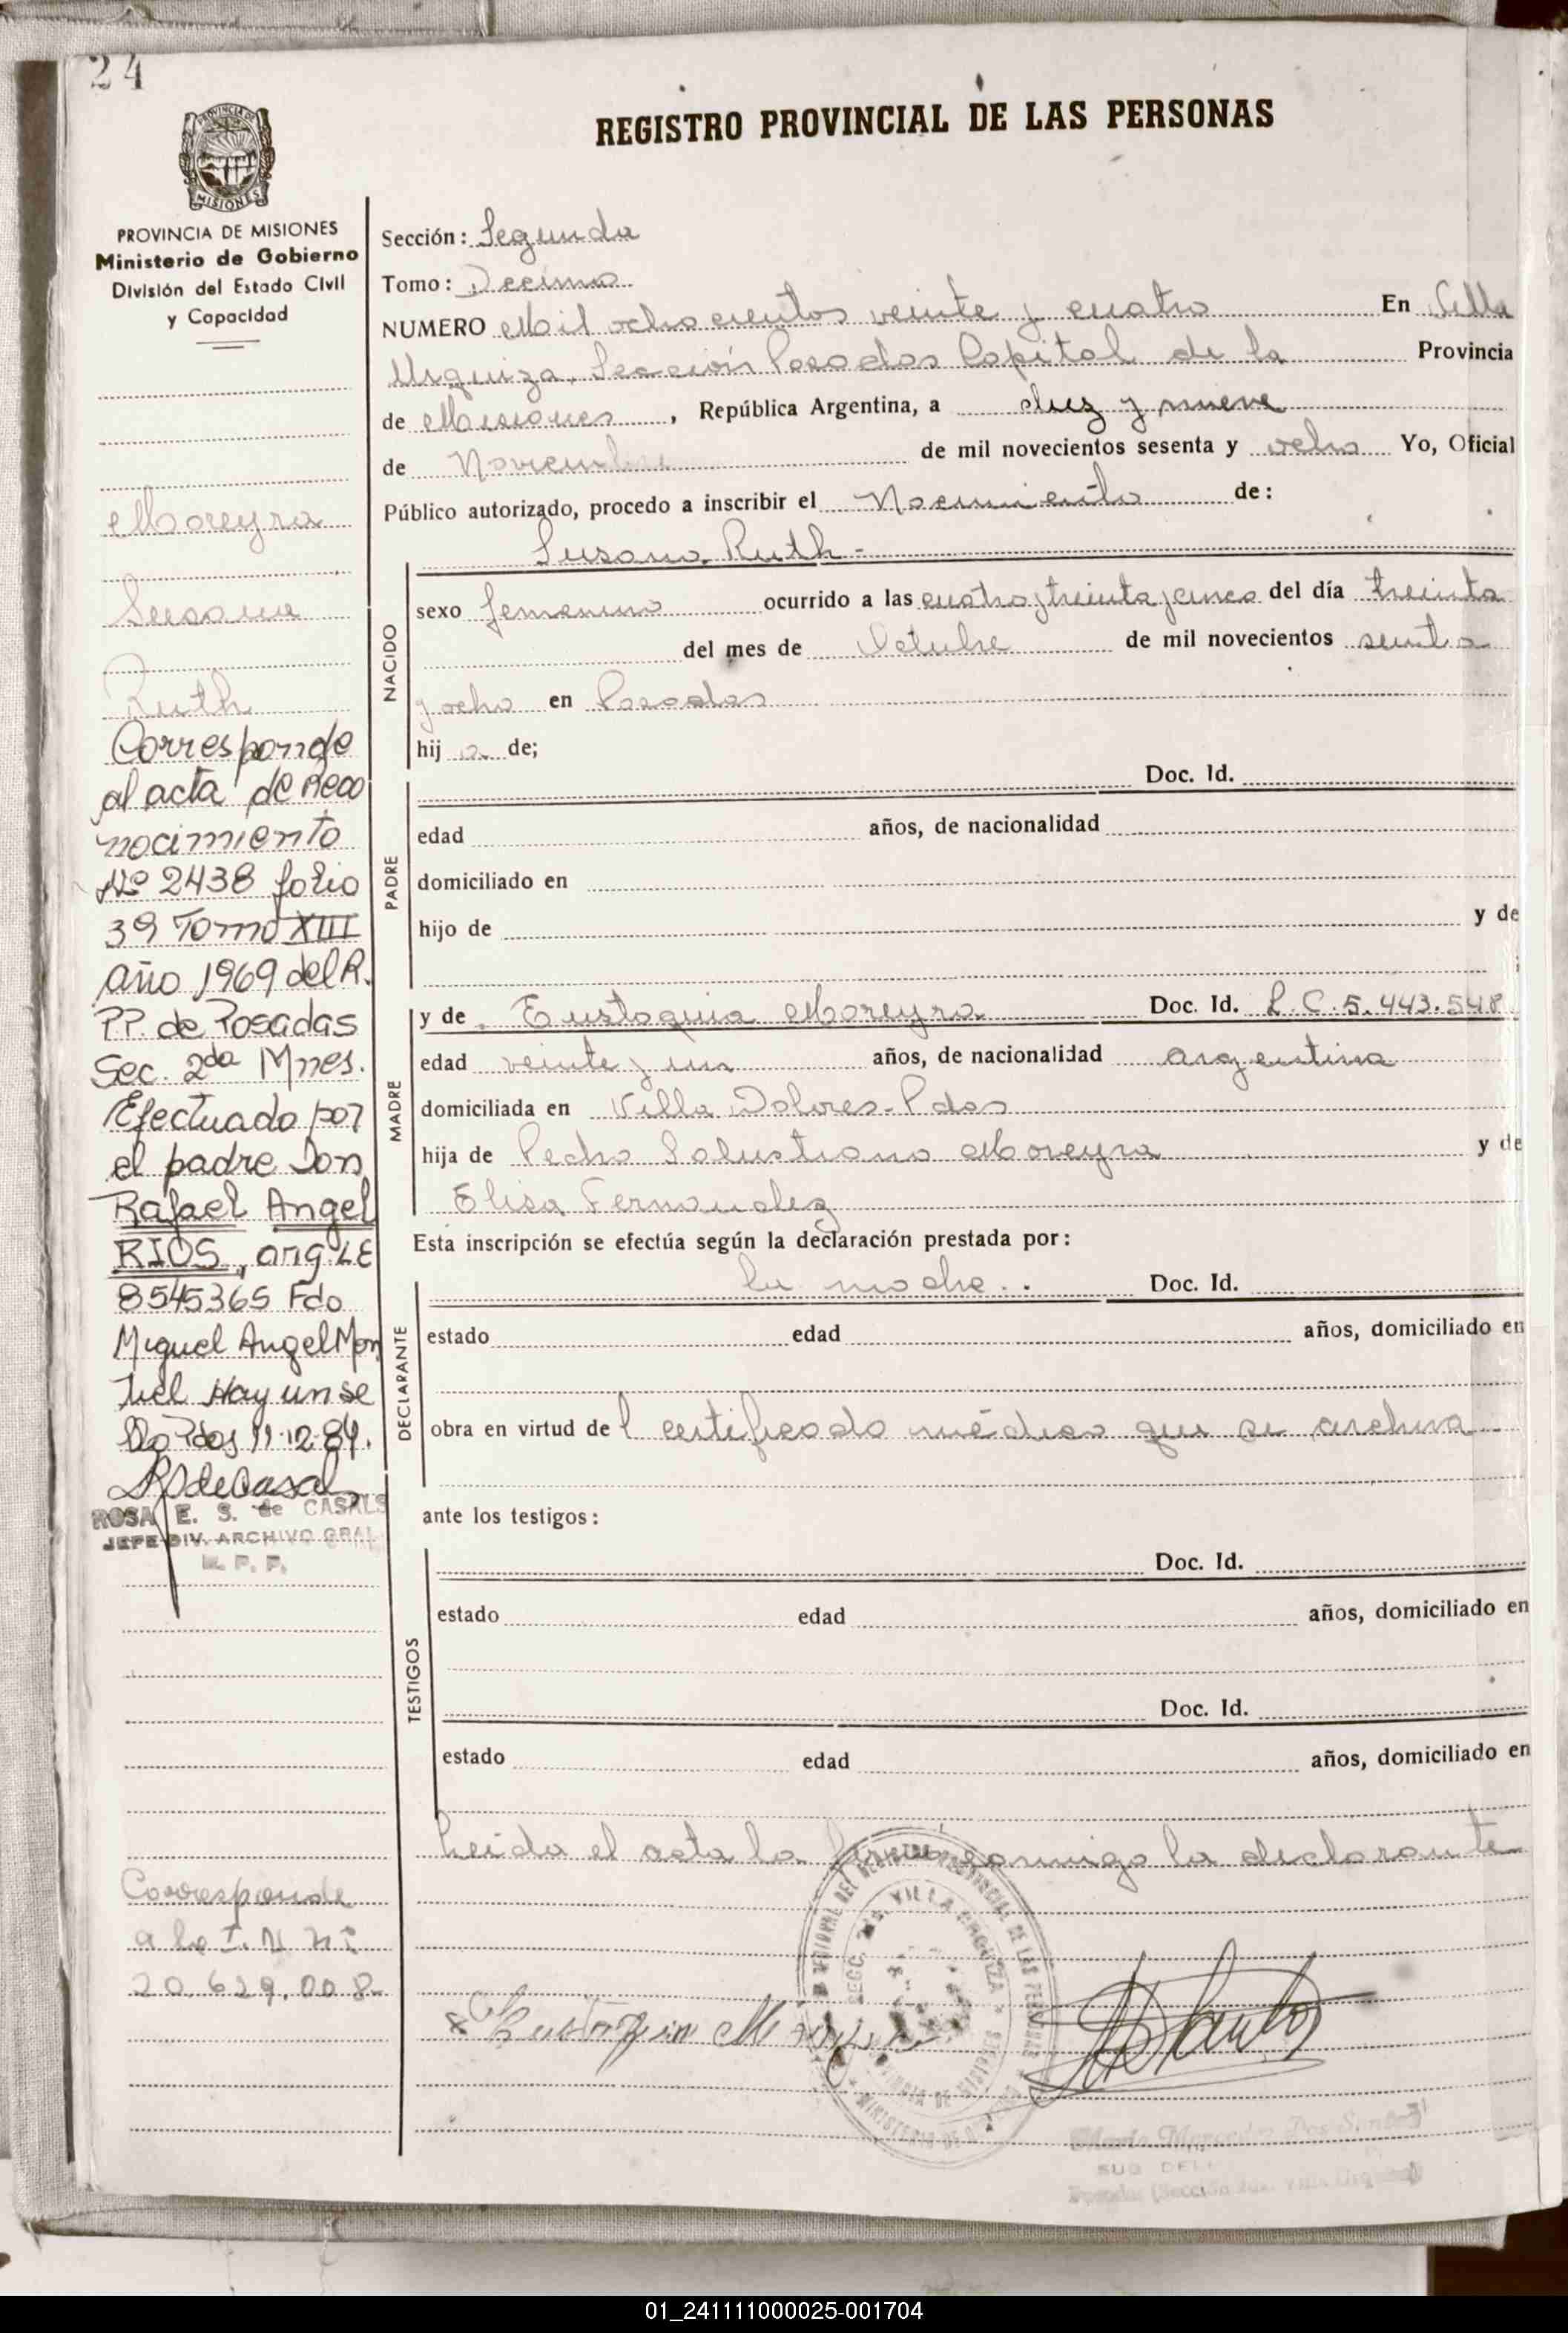 24
REGISTRO PROVINCIAL DE LAS PERSONAS
PROVINCIA DE MISIONES
Ministerio de Gobierno
División del Estado Civil
y Capacidad
Moreyra
Susana
Ruth
Corresponde
al acta de Reco
nocimiento
Nº 2438 folio
39 Tomo XIII
año 1969 del R.
P.P. de Posadas
Sec. 2da Mnes.
Efectuado por
el padre Don
Rafael Angel
RIOS, arg. LE
8545365 Fdo
Miguel Angel Mon
tiel Hay un se
llo Pdas 11.12.84.
ROSA E. S. de CASALS
JEFE DIV. ARCHIVO GRAL
R. P. P.
Corresponde
a la I. N Nº
20.629.008
Sección: Segunda
Tomo: Decimo
NUMERO Mil ochocientos veinte y cuatro En Villa
Urquiza, Sección Posadas Capital de la Provincia
de Misiones, República Argentina, a diez y nueve
de Noviembre de mil novecientos sesenta y ocho Yo, Oficial
Público autorizado, procedo a inscribir el Nacimiento de:
Susana Ruth -
NACIDO
sexo femenino ocurrido a las cuatro y treinta y cinco del día treinta
del mes de Octubre de mil novecientos sesenta
y ocho en Posadas
hij a de;
PADRE
Doc. Id.
edad años, de nacionalidad
domiciliado en
hijo de y de
MADRE
y de Eustaquia Moreyra Doc. Id. L.C. 5.443.548
edad veinte y un años, de nacionalidad argentina
domiciliada en Villa Dolores - Pdas
hija de Pedro Salustiano Moreyra y de
Elisa Fernandez
Esta inscripción se efectúa según la declaración prestada por:
DECLARANTE
la madre.. Doc. Id.
estado edad años, domiciliado en
obra en virtud del certificado médico que se archiva
ante los testigos:
TESTIGOS
Doc. Id.
estado edad años, domiciliado en
Doc. Id.
estado edad años, domiciliado en
Leida el acta la firma conmigo la declarante
VILLA URQUIZA
SUB DEL
01_241111000025-001704